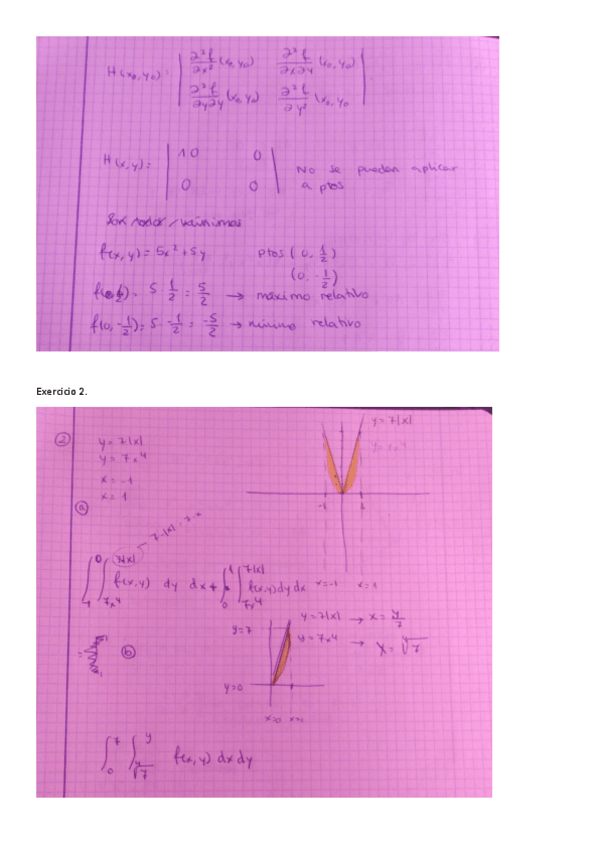 H(x₀, y₀): | ∂²f/∂x² (x₀, y₀) ∂²f/∂x∂y (x₀, y₀) |
| ∂²f/∂y∂y (x₀, y₀) ∂²f/∂y² (x₀, y₀ |
H(x,y): | 10 0 |
| 0 0 |
No se pueden aplicar
a ptos
f(x, y) = 5x² + 5y ptos (0, 1/2)
(0, -1/2)
5 · 1/2 = 5/2 → máximo relativo
f(0, -1/2) = 5 · -1/2 = -5/2 → mínimo relativo
Exercicio 2.
② y = 7|x|
y = 7x⁴
x = -1
x = 1
y = 7|x|
-1 1
ⓐ
∫ ∫ 7x⁴ 7|x| f(x,y) dy dx + ∫ 0 1 ∫ 7x⁴ 7|x| f(x,y) dy dx
x=-1 x=1
ⓑ
y = 7|x| → x = y/7
y=7
y = 7x⁴ → x = ∜7
y=0
x=0
∫ 0 7 ∫ f(x, y) dx dy